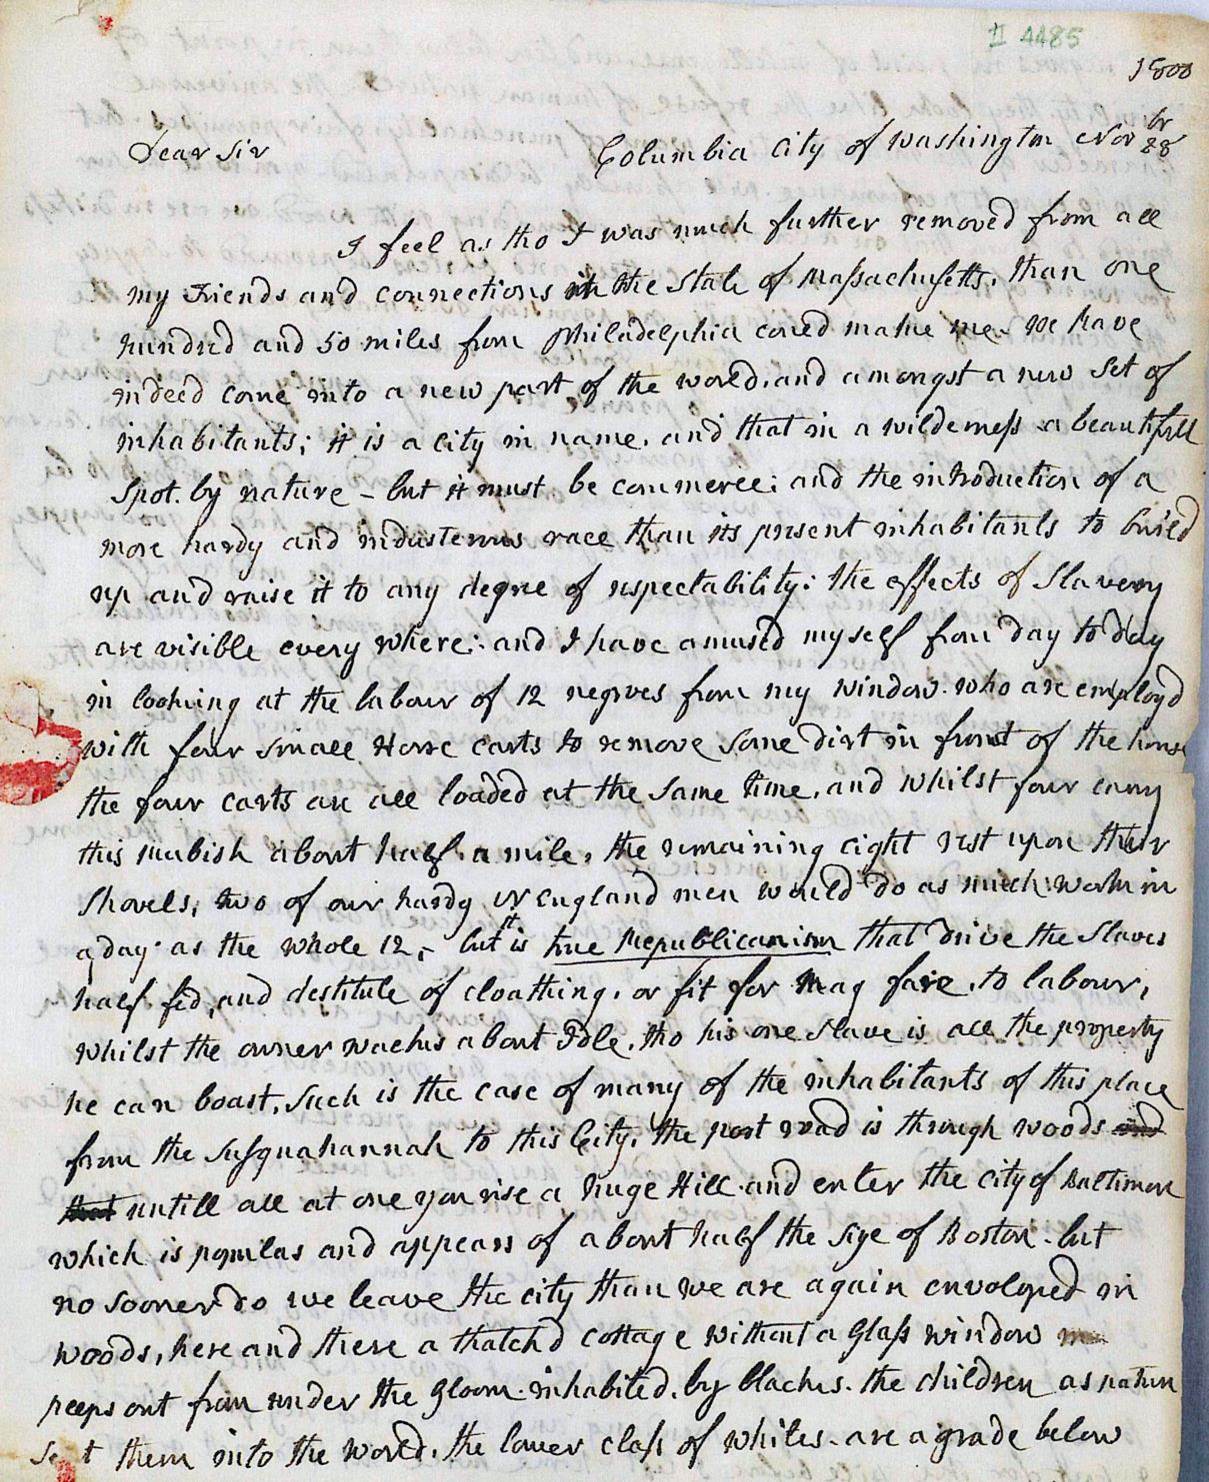 II 4485
1800
Dear Sir Columbia city of Washington Nov br 28
I feel as tho I was much further removed from all
my Friends and connections in the State of Massachusetts, than one
hundred and 50 miles from Philadelphia could make me. We have
indeed come into a new part of the world. and amongst a new set of
inhabitants; it is a city in name, and that in a wilderness a beautifull
spot. by nature - but it must be commerce: and the introduction of a
more hardy and industerous race than its present inhabitants to build
up and raise it to any degree of respectability: the effects of Slavery
are visible every where: and I have amused myself from day to day
in looking at the labour of 12 negroes from my window. who are employd
with four small Horse carts to remove some dirt in front of the house
the four carts are all loaded at the same time, and whilst four carry
this rubish about half a mile, the remaining eight rest upon their
Shovels, two of our hardy N England men would do as much work in
a day as the whole 12, - but it is true Republicanism that drive the Slaves
half fed, and destitute of cloathing, or fit for May faire, to labour,
whilst the owner waches about Idle, tho his one Slave is all the property
he can boast, such is the case of many of the inhabitants of this place
from the Susquahannah to this City, the post road is through woods and
that untill all at one you rise a huge Hill. and enter the city of Baltimore
which is populas and appears of about half the size of Boston. but
no sooner do we leave the city than we are again envoloped in
woods, here and there a thatchd cottage without a Glass window
peeps out from under the Gloom. inhabited. by blacks. the children as nature
sent them into the world. the lower class of whites. are a grade below